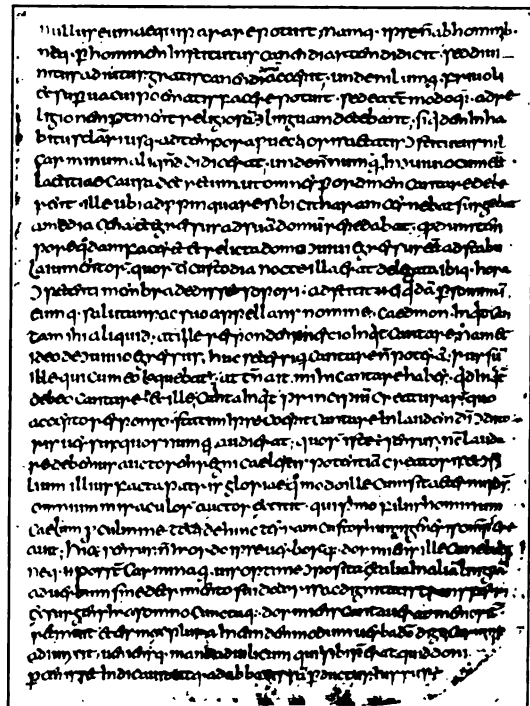 nullus eum aequiparare potuit. Namq; ipse n̄ ab hominib;
neq; ꝑ hominem institutus canendi artem didicit sed diui
nitus adiutus gratis canendi accepit. unde nil umq̄ friuoli
et superuacui poematis facere potuit. sed ea modo q; ad re
ligionem ꝑtinent religiosā linguam decebant. siquidem in ha
bitu usq; ad tempora ꝓuectioris aetatis constitutus nil
carminum aliqn̄ didicerat. unde nn̄umq̄ in conuiuio cum esset
laetitiae causa decretum ut omnes ꝑ ordinem cantare debe
rent. ille ubi adꝓpinquare sibi citharam cernebat surgebat
a media caena et egressus ad suā domū repedabat. qd̄ dum tem
pore qdam faceret et relicta domo conuiui egressus esset ad stabu
la iumentor. quor ei custodia nocte illa erat delegata ibiq; hora
conpetenti membra dedisset sopori. adstitit ei qdā ꝑ somnium
eumq; salutans ac suo appellans nomine. Caedmon inqt can
ta mihi aliquid. at ille respondens nescio inqt cantare nam et
ideo de conuiuio egressus huc secessi q; cantare n̄ poterā. rursū
ille qui cum eo loquebat. at tn̄ ait. mihi cantare habes. qd inqt
debeo cantare et ille. canta inqt principiū creaturar. quo
accepto responso. statim ipse coepit cantare in laudem dī condito
ris uersus quos numq; audierat. quor iste ē sensus. nc̄ lauda
re debemus auctorem regni caelestis potentiā creatoris et consi
lium illius facta patris gloriae q̄modo ille cum sit aeternus ds̄
omnium miraculor auctor extitit. qui primo filiis hominum
caelum ꝓ culmine tecti dehinc terram custos humani generis omnips̄ cre
auit. hic ē sensus n̄ ordo ipse uerbor. q dormiens ille canebat
neq; n̄ possunt carmina q̄uis optime conposita ex alia in aliā linguā
ad uerbum sine detrimento sui decoris ac dignitatis transferri
exsurgens a somno cuncta q; dormiens cantauerat memoriter
retinuit et eis mox plura in eundem modum uerba dō digni carminis
adiunxit. ueniensq; mane ad uilicum qui sibi praeerat quid doni
ꝑcepisset indicauit atq; ad abbatissā ꝑductus iussus ē